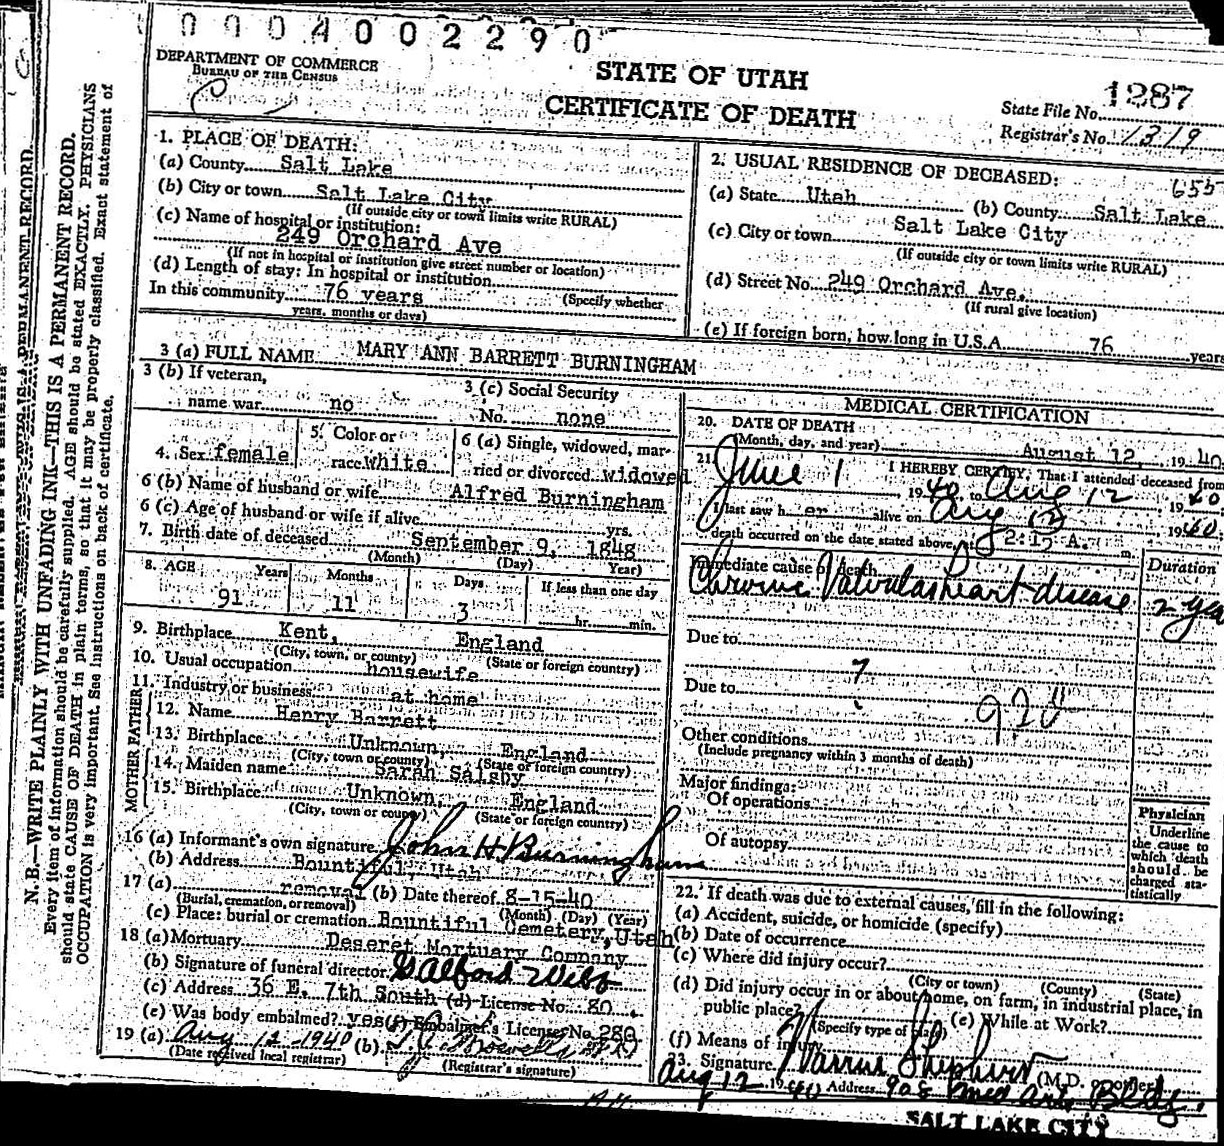 0004002290
DEPARTMENT OF COMMERCE
BUREAU OF THE CENSUS
STATE OF UTAH
CERTIFICATE OF DEATH
State File No. 1287
Registrar's No. 1319
N. B.—WRITE PLAINLY WITH UNFADING INK—THIS IS A PERMANENT RECORD.
Every item of information should be carefully supplied. AGE should be stated EXACTLY. PHYSICIANS
should state CAUSE OF DEATH in plain terms, so that it may be properly classified. Exact statement of
OCCUPATION is very important. See instructions on back of certificate.
1. PLACE OF DEATH:
(a) County Salt Lake
(b) City or town Salt Lake City
(If outside city or town limits write RURAL)
(c) Name of hospital or institution:
249 Orchard Ave
(If not in hospital or institution give street number or location)
(d) Length of stay: In hospital or institution
In this community 76 years (Specify whether
years, months or days)
2. USUAL RESIDENCE OF DECEASED:
655
(a) State Utah (b) County Salt Lake
(c) City or town Salt Lake City
(If outside city or town limits write RURAL)
(d) Street No. 249 Orchard Ave.
(If rural give location)
(e) If foreign born, how long in U.S.A. 76 years
3 (a) FULL NAME MARY ANN BARRETT BURNINGHAM
3 (b) If veteran, name war no
3 (c) Social Security No. none
4. Sex female
5. Color or race White
6 (a) Single, widowed, married or divorced widowed
6 (b) Name of husband or wife Alfred Burningham
6 (c) Age of husband or wife if alive yrs.
7. Birth date of deceased September 9, 1848
(Month) (Day) Year)
8. AGE Years Months Days If less than one day
91 11 3 hr. min.
9. Birthplace Kent, England
(City, town, or county) (State or foreign country)
10. Usual occupation housewife
11. Industry or business at home
FATHER
12. Name Henry Barrett
13. Birthplace Unknown, England
(City, town or county) (State or foreign country)
MOTHER
14. Maiden name Sarah Salsby
15. Birthplace Unknown, England
(City, town or county) (State or foreign country)
16 (a) Informant's own signature John H Burningham
(b) Address Bountiful, Utah
17 (a) removal (b) Date thereof 8-15-40
(Burial, cremation, or removal) (Month) (Day) (Year)
(c) Place: burial or cremation Bountiful Cemetery, Utah
18 (a) Mortuary Deseret Mortuary Company
(b) Signature of funeral director Webb
(c) Address 36 E. 7th South (d) License No. 80
(e) Was body embalmed? yes (f) Embalmer's License No. 280
19 (a) Aug 12 1940 (b)
(Date received local registrar) (Registrar's signature)
MEDICAL CERTIFICATION
20. DATE OF DEATH
(Month, day, and year) August 12, 1940
21. I HEREBY CERTIFY, That I attended deceased from
June 1 1940, to Aug 12 1940
I last saw h er alive on Aug 12 1940
death occurred on the date stated above, 2:15 A. m.
Immediate cause of death Duration
Chronic Valvular heart disease 2 yrs
Due to
?
Due to
92b
Other conditions
(Include pregnancy within 3 months of death)
Major findings:
Of operations
Of autopsy
Physician
Underline
the cause to
which death
should be
charged sta-
tistically
22. If death was due to external causes, fill in the following:
(a) Accident, suicide, or homicide (specify)
(b) Date of occurrence
(c) Where did injury occur?
(City or town) (County) (State)
(d) Did injury occur in or about home, on farm, in industrial place, in
public place?
(Specify type of place) (e) While at Work?
(f) Means of injury
23. Signature (M.D. or other)
Aug 12 1940 Address 908 Med Arts Bldg.
SALT LAKE CITY